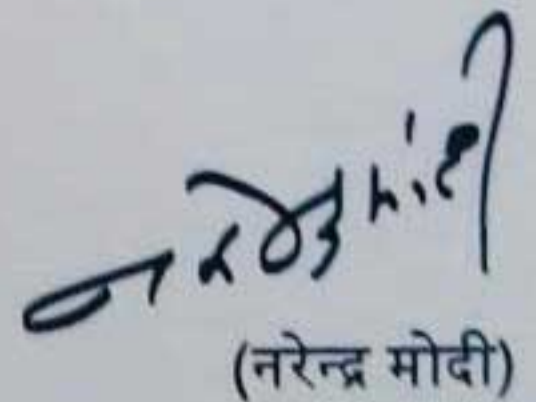 नरेन्द्र मोदी
(नरेन्द्र मोदी)